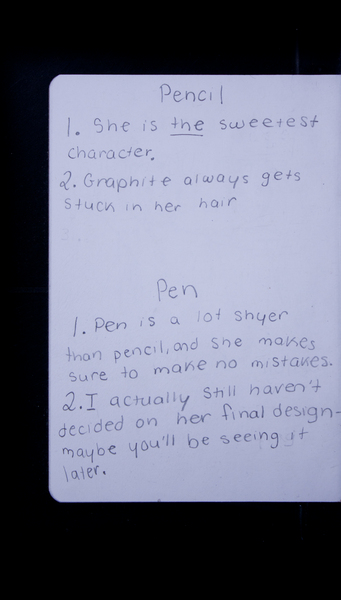 Pencil
1. She is the sweetest
character.
2. Graphite always gets
stuck in her hair
Pen
1. Pen is a lot shyer
than pencil, and she makes
sure to make no mistakes.
2. I actually still haven't
decided on her final design-
maybe you'll be seeing it
later.